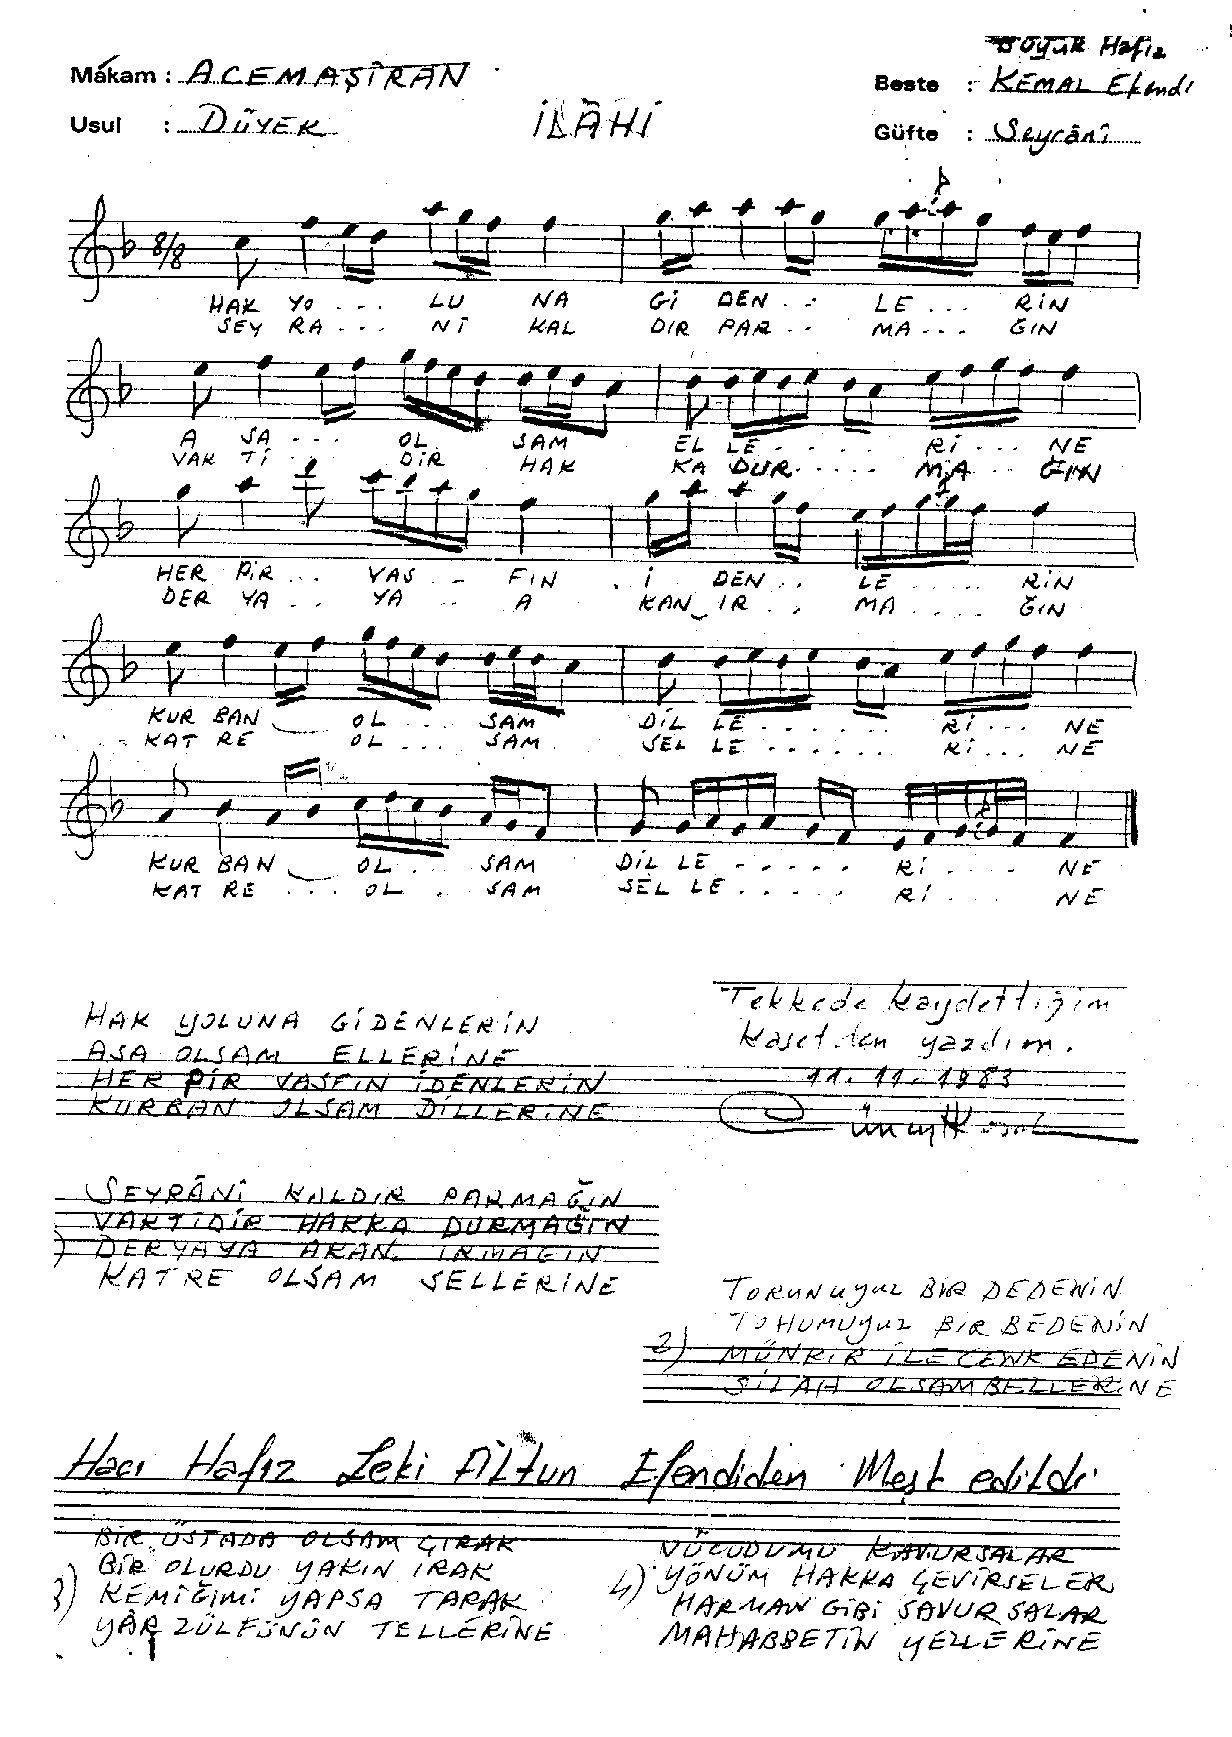 Mâkam : ACEMAŞİRAN
Usul : DÜYEK
İLÂHİ
Büyük Hafız
Beste : KEMAL Efendi
Güfte : Seyrânî
8/8
HAK YO . . . LU NA Gİ DEN . . LE . . . RİN
SEY RA . . . Nİ KAL DIR PAR . . MA . . . GIN
A SA . . . OL SAM EL LE . . . . . Rİ . . . NE
VAK Tİ . . . DİR HAK KA DUR . . . . . MA . . . ĞIN
HER PİR . . . VAS . . FIN . İ DEN . . LE . . . . . RİN
DER YA . . YA . . A KAN IR . . MA . . . . ĞIN
KUR BAN OL . . . SAM DİL LE . . . . . . Rİ . . . NE
KAT RE OL . . . SAM SEL LE . . . . . . Rİ . . . NE
KUR BAN OL . . SAM DİL LE . . . . . Rİ . . . . NE
KAT RE . . . OL . SAM SEL LE . . . . . Rİ . . . . NE
HAK YOLUNA GİDENLERİN
ASA OLSAM ELLERİNE
HER PİR VASFIN İDENLERİN
KURBAN OLSAM DİLLERİNE
Tekkede kaydettiğim
kasetden yazdım.
11.11.1983
SEYRÂNİ KALDIR PARMAĞIN
VAKTİDİR HAKKA DURMAĞIN
DERYAYA AKAN IRMAGIN
KATRE OLSAM SELLERİNE
TORUNUyuz BİR DEDENİN
TOHUMUyuz BİR BEDENİN
2) MÜNKİR İLE CENK EDENİN
SİLAH OLSAM BELLERİNE
Hacı Hafız Zeki Altun Efendiden Meşk edildi
BİR ÜSTADA OLSAM ÇIRAK
BİR OLURDU YAKIN IRAK
3) KEMİĞİMİ YAPSA TARAK
YÂR ZÜLFÜNÜN TELLERİNE
VÜCUDUMU KAVURSALAR
4) YÖNÜM HAKKA ÇEVİRSELER
HARMAN GİBİ SAVURSALAR
MAHABBETİN YELLERİNE